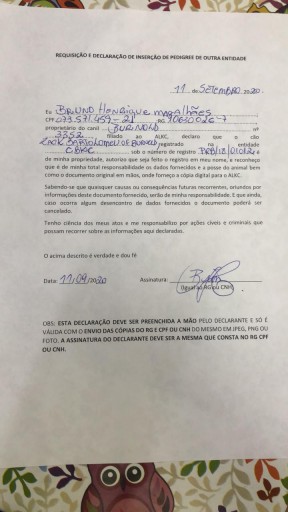 REQUISIÇÃO E DECLARAÇÃO DE INSERÇÃO DE PEDIGREE DE OUTRA ENTIDADE
11 de SETEMBRO de 20
Eu BRUNO Henrique magalhães
CPF RG
proprietário do canil nº
3352 filiado ao ALKC, declaro que o cão
registrado na entidade
CBKC sob o número de registro
de minha propriedade, autorizo que seja feito o registro em meu nome, e reconheço
que é de minha total responsabilidade os dados fornecidos e a posse do animal bem
como o documento original em mãos, onde forneço a cópia digital para o ALKC.
Sabendo-se que quaisquer causas ou consequências futuras recorrentes, oriundos por
informações deste documento fornecido, serão de minha responsabilidade. E que ainda,
caso ocorra algum desencontro de dados fornecidos o documento poderá ser
cancelado.
Tenho ciência dos meus atos e me responsabilizo por ações cíveis e criminais que
possam recorrer sobre as informações aqui declaradas.
O acima descrito é verdade e dou fé
Data: 11/09/2020 Assinatura:
(Igual ao RG ou CNH)
OBS: ESTA DECLARAÇÃO DEVE SER PREENCHIDA A MÃO PELO DECLARANTE E SÓ É
VÁLIDA COM O ENVIO DAS CÓPIAS DO RG E CPF OU CNH DO MESMO EM JPEG, PNG OU
FOTO. A ASSINATURA DO DECLARANTE DEVE SER A MESMA QUE CONSTA NO RG CPF
OU CNH.